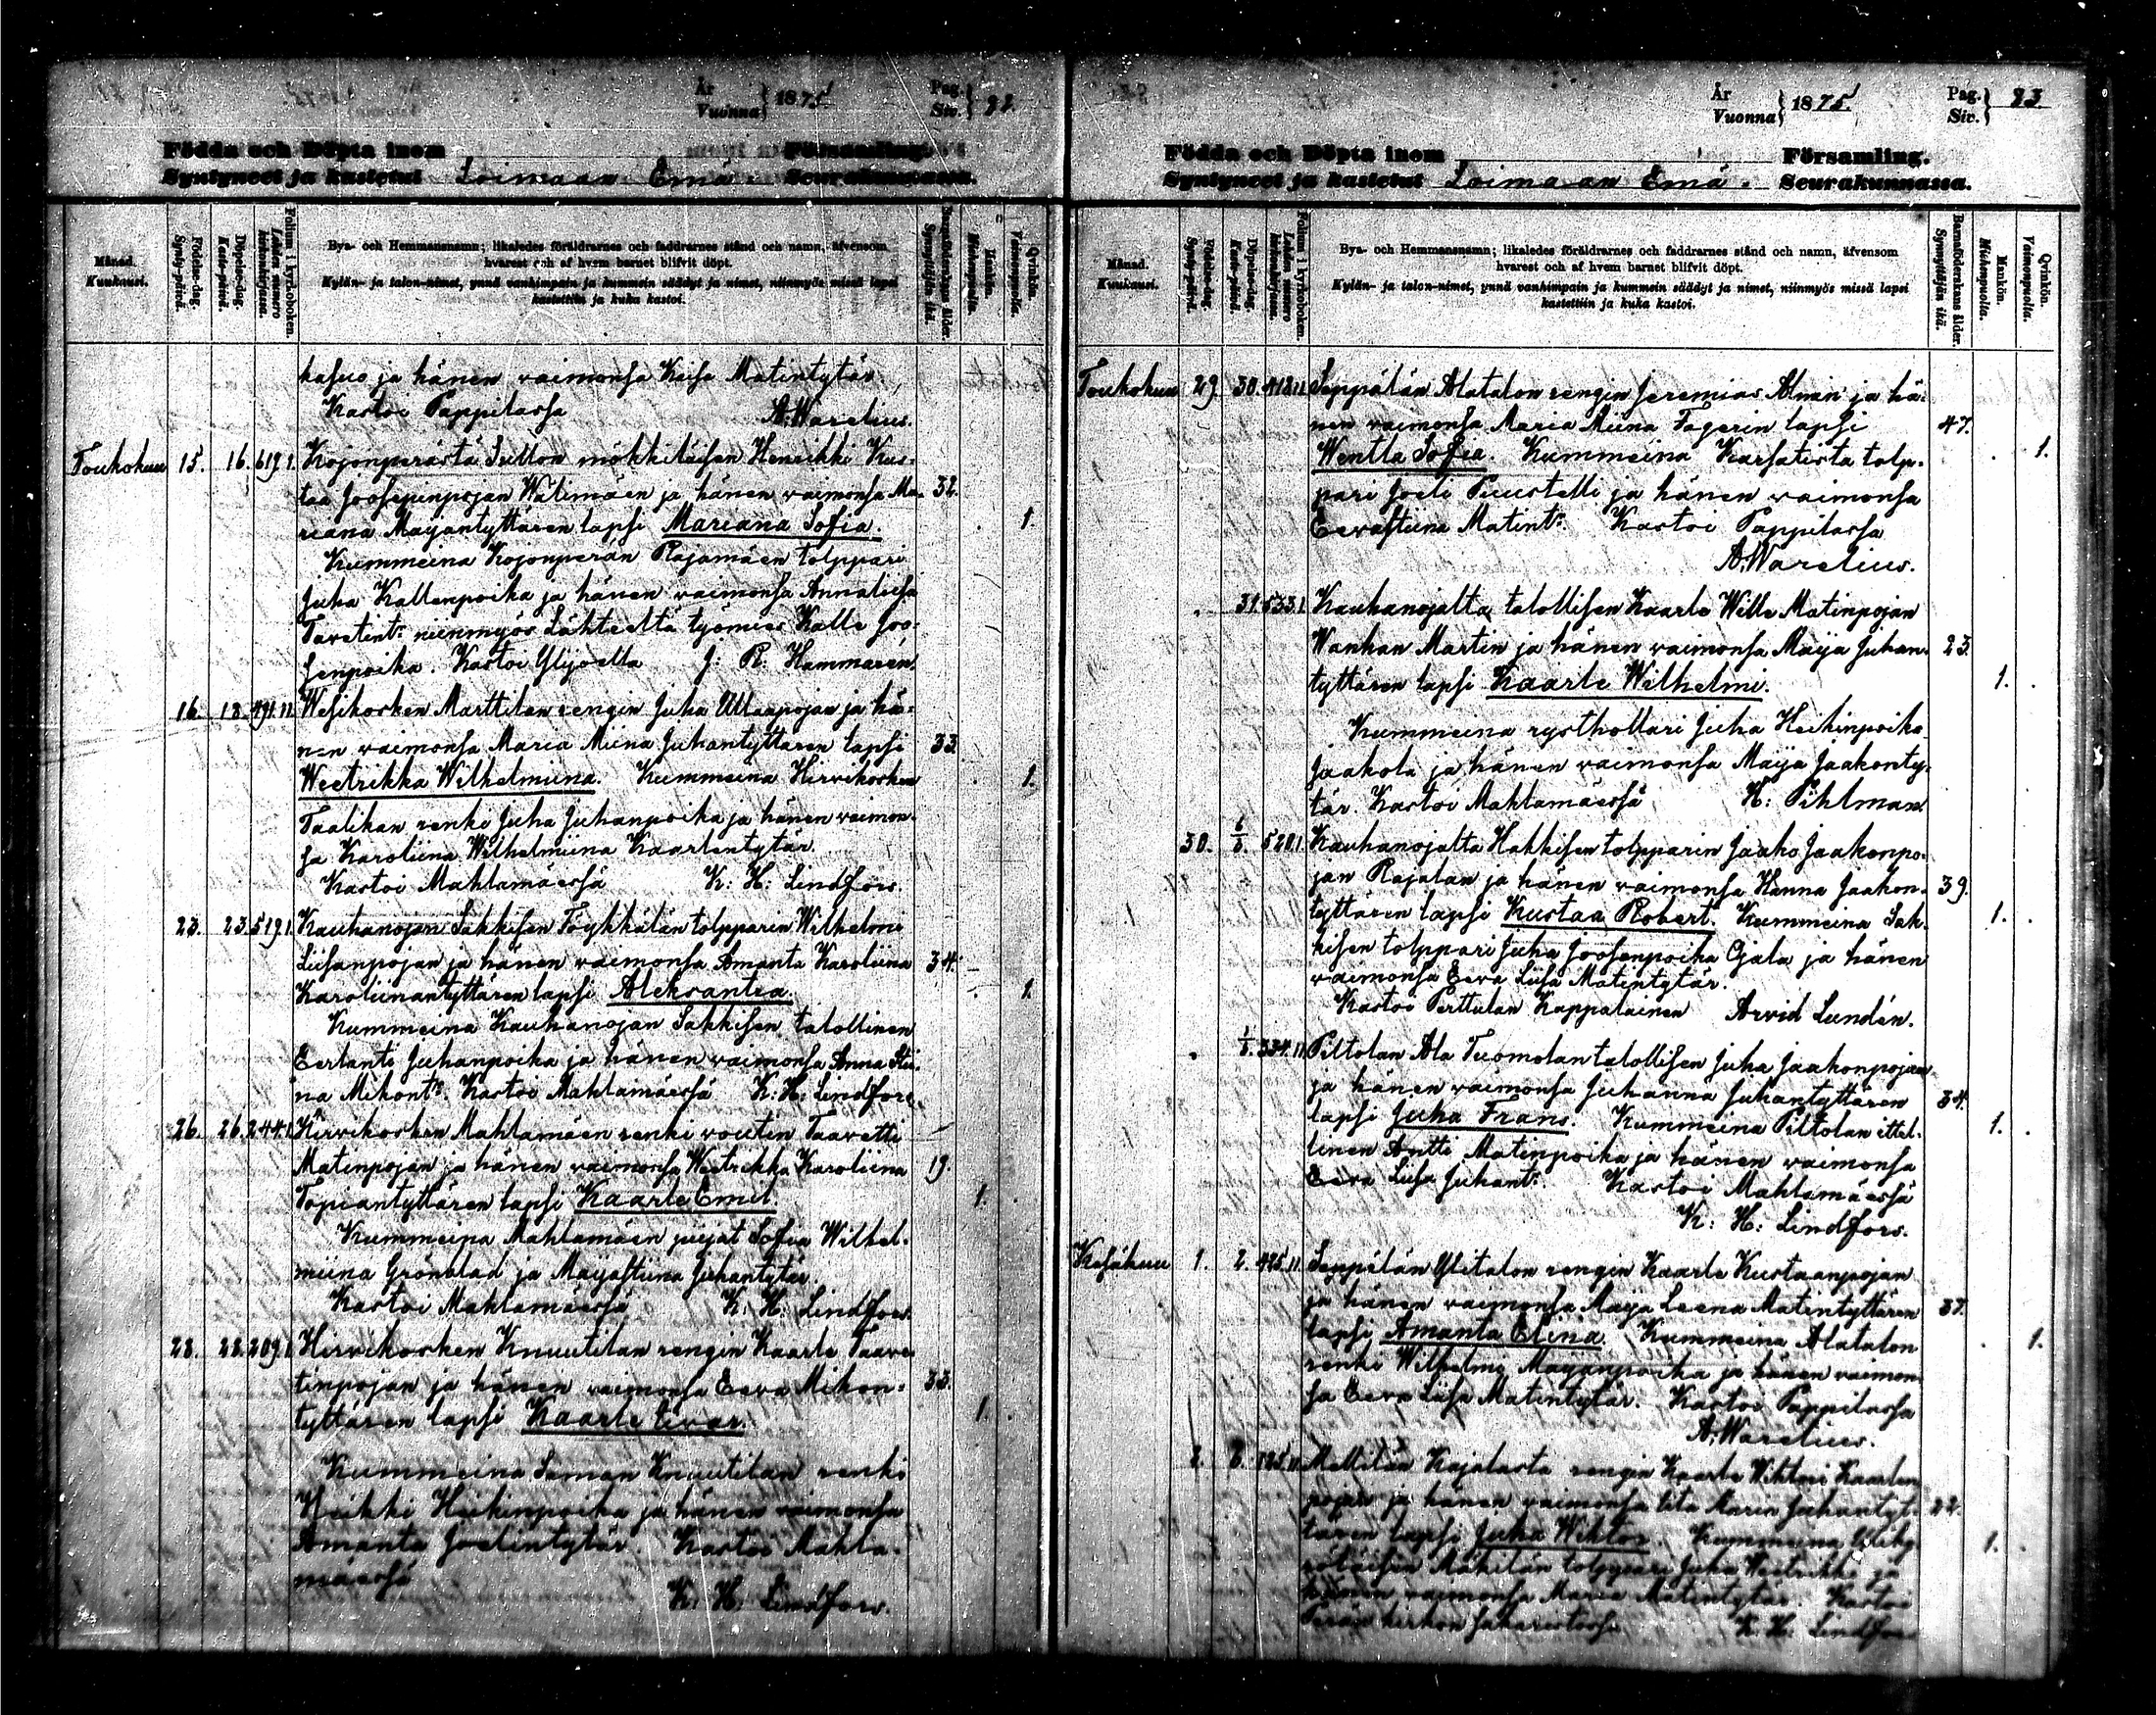 År
Vuonna } 1875
Pag.
Siv. } 92.
Födda och Döpta inom Församling.
Syntyneet ja kastetut Loimaan Emä- Seurakunnassa.
Månad.
Kuukausi.
Födelse-dag.
Synty-päivä.
Döpelse-dag.
Kaste-päivä.
Folium i kyrkoboken.
Lehden numero
kirkonkirjassa.
Bys- och Hemmansnamn; likaledes föräldrarnes och faddrarnes stånd och namn, äfvensom
hvarest och af hvem barnet blifvit döpt.
Kylän- ja talon-nimet, ynnä vanhimpain ja kummein säädyt ja nimet, niinmyös missä lapsi
kastettiin ja kuka kastoi.
Barnföderskans ålder.
Synnyttäjän ikä.
Mankön.
Miehenpuolta.
Qvinkön.
Vaimonpuolta.
ja hänen vaimonsa Kaisa Matintytär
Kastoi Pappilassa A. Warelius.
Toukokuu 15. 16. 619.1. Kojonperästä Sutton mökkiläisen Henrikki Kus-
taa Joosepinpojan Wälimäen ja hänen vaimonsa Ma- 32.
riana Maijantyttären lapsi Mariana Sofia. 1.
Kummeina Kojonperän Rajamäen tolppari
Juha Kallenpoika ja hänen vaimonsa Annaliisa
Tavetint: niinmyös Lähteeltä työmies Kalle Joo-
senpoika. Kastoi Ylijoella J. R. Hammarén.
16. 18. 491.11. Wesikosken Marttilan rengin Juha Ullanpojan ja hä-
nen vaimonsa Maria Miina Juhantyttären lapsi 33.
Weetrikka Wilhelmiina. Kummeina Hirvikosken 1.
Taalikan renki Juha Juhanpoika ja hänen vaimon-
sa Karoliina Wilhelmiina Kaarlentytär.
Kastoi Mahlamäessä K: H: Lindfors.
23. 23. 519.1. Kauhanojan Sakkisen Töykkälän tolpparin Wilhelmi
Liisanpojan ja hänen vaimonsa Amanta Karoliina 34.
Karoliinantyttären lapsi Aleksantra. 1.
Kummeina Kauhanojan Sakkisen talollinen
Eerlanti Juhanpoika ja hänen vaimonsa Anna Stii-
na Mikont: Kastoi Mahlamäessä K: H: Lindfors.
26. 26. 244.1. Hirvikosken Mahlamäen renki voutin Taavetti
Matinpojan ja hänen vaimonsa Weetrikka Karoliina 19.
Topiantyttären lapsi Kaarle Emil. 1.
Kummeina Mahlamäen piijat Sofia Wilhel-
miina Grönblad ja Maijastiina Juhantytär.
Kastoi Mahlamäessä K: H: Lindfors.
28. 28. 209.1. Hirvikosken Knuutilan rengin Kaarle Taave-
tinpojan ja hänen vaimonsa Eeva Mikon- 33.
tyttären lapsi Kaarle Iivar. 1.
Kummeina Saman Knuutilan renki
Heikki Heikinpoika ja hänen vaimonsa
Amanta Joelintytär. Kastoi Mahla-
mäessä K: H: Lindfors.
År
Vuonna } 1875.
Pag.
Siv. } 93
Födda och Döpta inom Församling.
Syntyneet ja kastetut Loimaan Emä- Seurakunnassa.
Månad.
Kuukausi.
Födelse-dag.
Synty-päivä.
Döpelse-dag.
Kaste-päivä.
Folium i kyrkoboken.
Lehden numero
kirkonkirjassa.
Bys- och Hemmansnamn; likaledes föräldrarnes och faddrarnes stånd och namn, äfvensom
hvarest och af hvem barnet blifvit döpt.
Kylän- ja talon-nimet, ynnä vanhimpain ja kummein säädyt ja nimet, niinmyös missä lapsi
kastettiin ja kuka kastoi.
Barnföderskans ålder.
Synnyttäjän ikä.
Mankön.
Miehenpuolta.
Qvinkön.
Vaimonpuolta.
Toukokuu 29. 30. 418.11. Seppälän Alatalon rengin Jeremias Almin ja hä-
nen vaimonsa Maria Miina Fagerin lapsi 47.
Wentla Sofia. Kummeina Karsatista tolp- 1.
pari Joeli Puustelli ja hänen vaimonsa
Eevastiina Matint: Kastoi Pappilassa
A. Warelius.
31. 533.1. Kauhanojalta talollisen Kaarle Wille Matinpojan
Wanhan Martin ja hänen vaimonsa Maija Juhan- 23.
tyttären lapsi Kaarle Wilhelmi. 1.
Kummeina rysthollari Juha Heikinpoika
Jaakola ja hänen vaimonsa Maija Jaakonty-
tär. Kastoi Mahlamäessä H: Pihlman.
30. 6/6. 520.1. Kauhanojalta Hakkisen tolpparin Jaako Jaakonpo-
jan Rajalan ja hänen vaimonsa Hanna Jaakon- 39.
tyttären lapsi Kustaa Robert. Kummeina Sak- 1.
kisen tolppari Juha Joosenpoika Ojala ja hänen
vaimonsa Eeva Liisa Matintytär.
Kastoi Perttulan Kappalainen Arvid Lundén.
1/6. 334.11. Piltolan Ala Tuomolan talollisen Juha Jaakonpojan
ja hänen vaimonsa Juhanna Juhantyttären 34.
lapsi Juha Frans. Kummeina Piltolan ittel- 1.
linen Antti Matinpoika ja hänen vaimonsa
Eeva Liisa Juhant: Kastoi Mahlamäessä
K: H: Lindfors.
Kesäkuu 1. 2. 425.11. Seppälän Ylitalon rengin Kaarle Kustaanpojan
ja hänen vaimonsa Maija Leena Matintyttären 37.
lapsi Amanta Elina. Kummeina Alatalon 1.
renki Wilhelmi Maijanpoika ja hänen vaimon-
sa Eeva Liisa Matintytär. Kastoi Pappilassa
A. Warelius.
2. Mellilän Kajalasta rengin Kaarle Wihtori Kaarlen-
pojan ja hänen vaimonsa Juhantyt- 22.
tären lapsi Juha Wihtor. Kummeina 1.
tolppari Juha Weetrikki ja
hänen vaimonsa Maria Matintytär. Kastoi
kirkon sakaristossa K: H: Lindfors